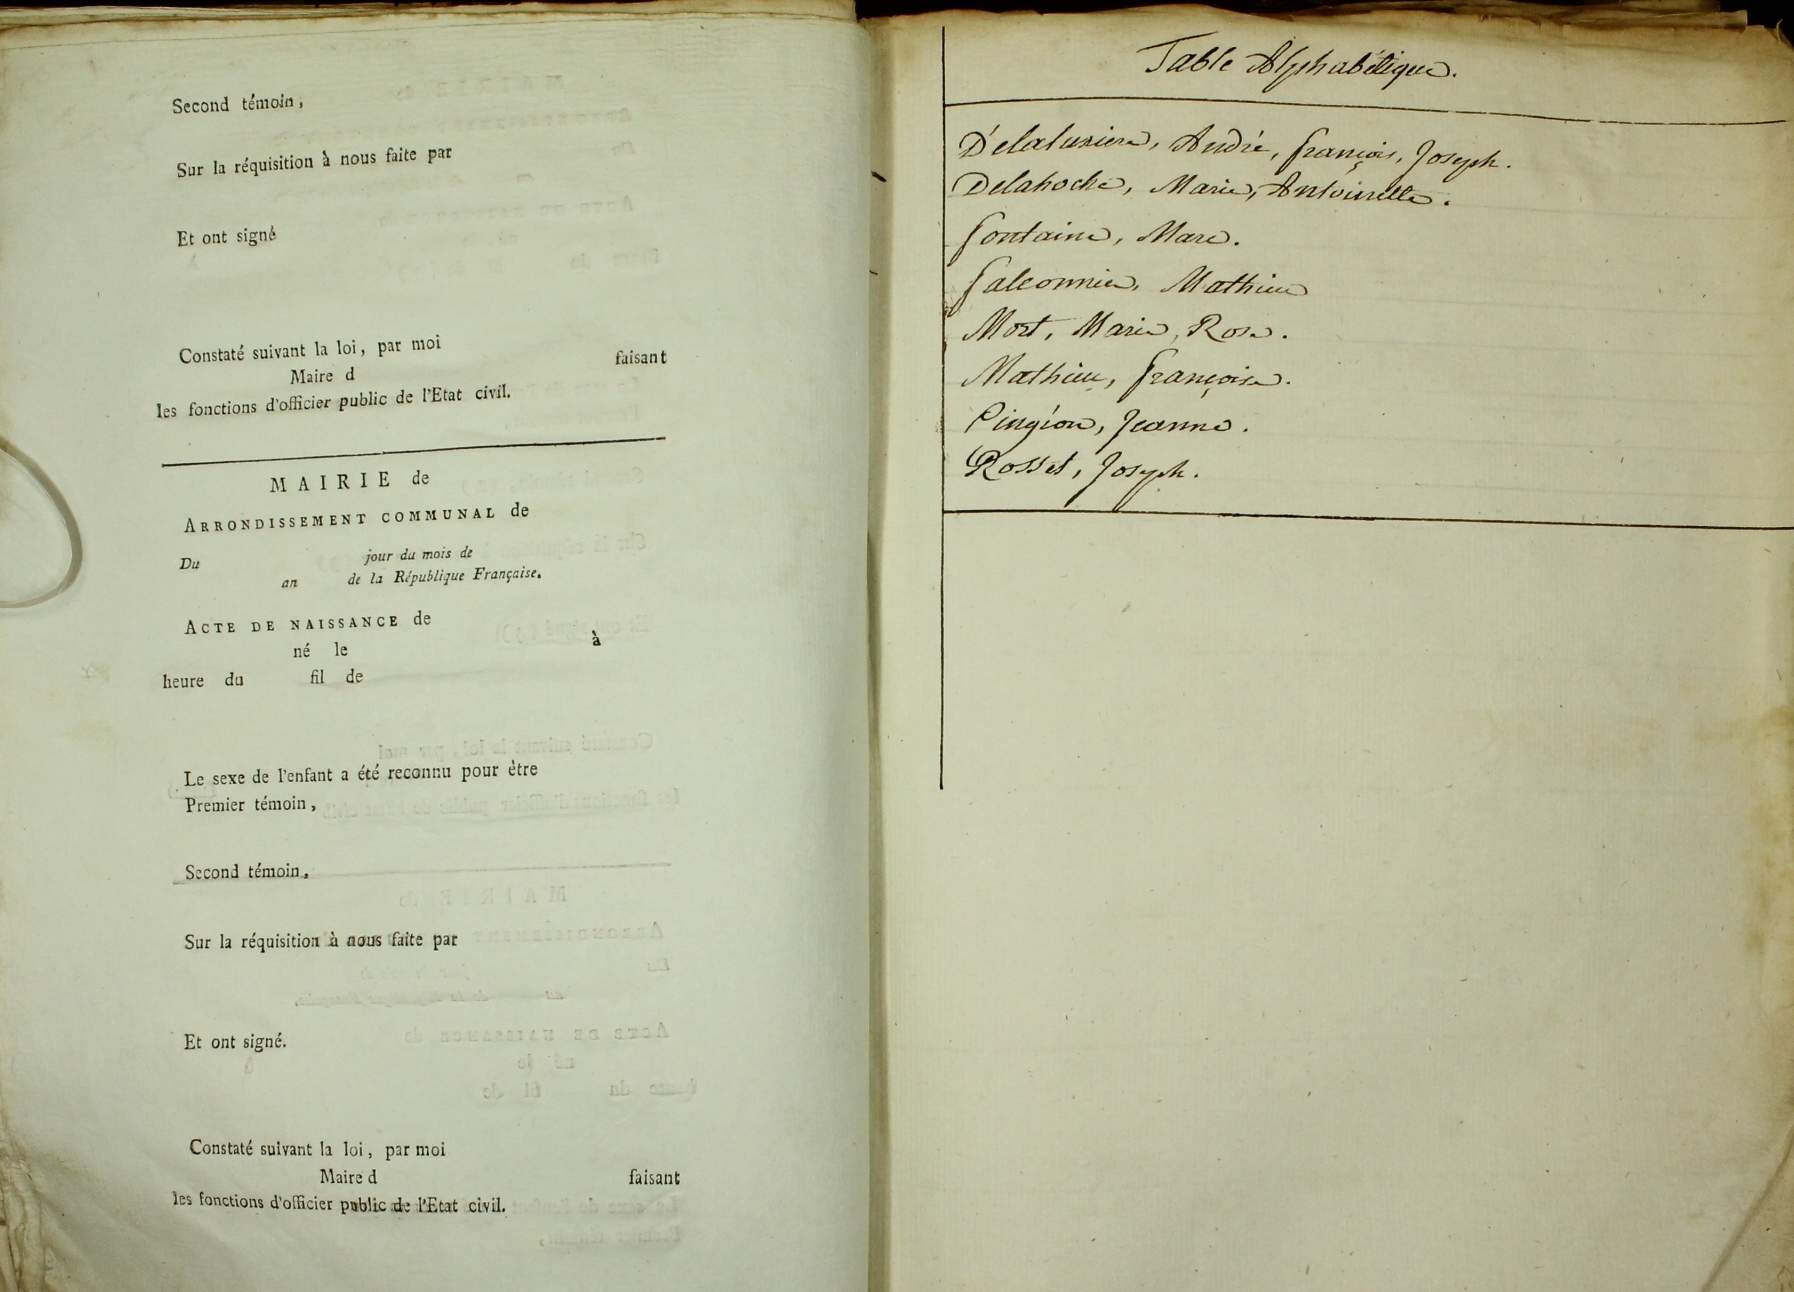 Second témoin,
Sur la réquisition à nous faite par
Et ont signé
Constaté suivant la loi, par moi
Maire d faisant
les fonctions d'officier public de l'Etat civil.
MAIRIE de
ARRONDISSEMENT COMMUNAL de
Du jour du mois de
an de la République Française.
ACTE DE NAISSANCE de
né le à
heure du fil de
Le sexe de l'enfant a été reconnu pour être
Premier témoin,
Second témoin,
Sur la réquisition à nous faite par
Et ont signé.
Constaté suivant la loi, par moi
Maire d faisant
les fonctions d'officier public de l'Etat civil.
Table Alphabétique.
André, françois, Joseph.
Delahoche, Marie, Antoinette.
fontaine, Marc.
falconnier, Mathieu
Mort, Marie, Rose.
Mathieu, françoise.
Pingéon, Jeanne.
Rosset, Joseph.